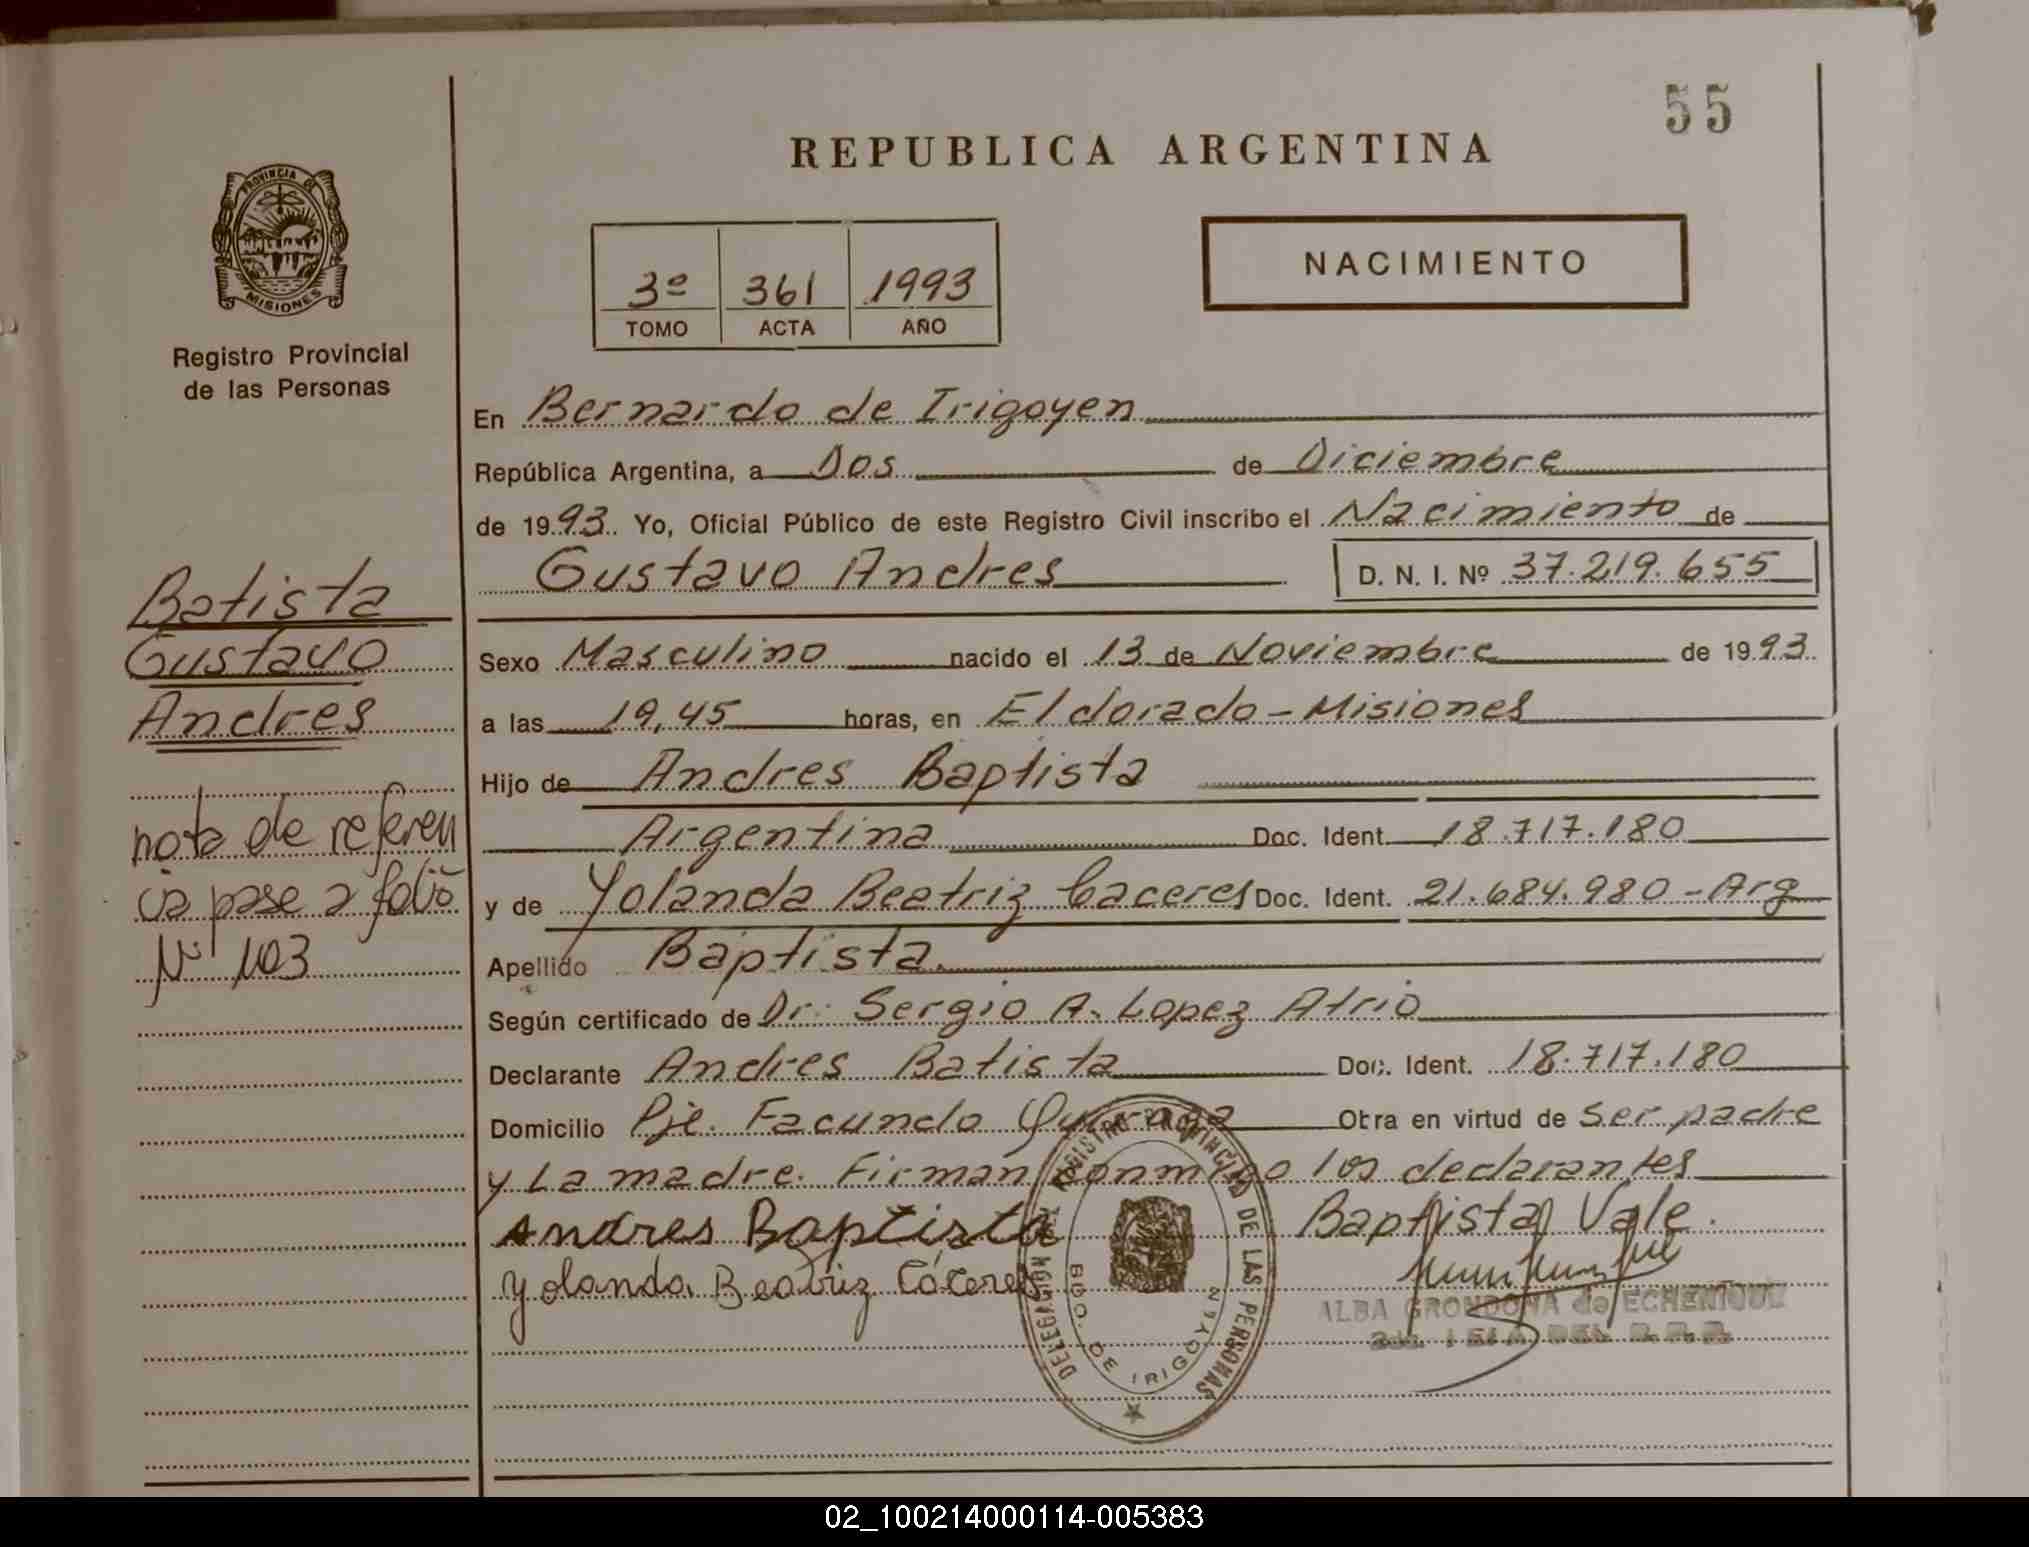 55
REPUBLICA ARGENTINA
PROVINCIA DE
MISIONES
Registro Provincial
de las Personas
3º 361 1993
TOMO ACTA AÑO
NACIMIENTO
En Bernardo de Irigoyen
República Argentina, a Dos de Diciembre
de 1993. Yo, Oficial Público de este Registro Civil inscribo el Nacimiento de
Gustavo Andres D. N. I. Nº 37.219.655
Batista
Gustavo
Andres
Sexo Masculino nacido el 13 de Noviembre de 1993.
a las 19,45 horas, en Eldorado - Misiones
Hijo de Andres Baptista
Argentina Doc. Ident. 18.717.180
nota de referen
cia pase a folio
Nº 103
y de Yolanda Beatriz Caceres Doc. Ident. 21.684.980 - Arg
Apellido Baptista.
Según certificado de Dr. Sergio A. Lopez Atrio
Declarante Andres Batista Doc. Ident. 18.717.180
Domicilio Pje. Facundo Quiroga Otra en virtud de ser padre
y La madre. Firman conmigo los declarantes
Andres Baptista Baptista Vale.
Yolanda Beatriz Cáceres
REGISTRO PROVINCIAL DE LAS PERSONAS
DELEGACION
BDO. DE IRIGOYEN
ALBA GRONDONA de ECHENIQUE
02_100214000114-005383